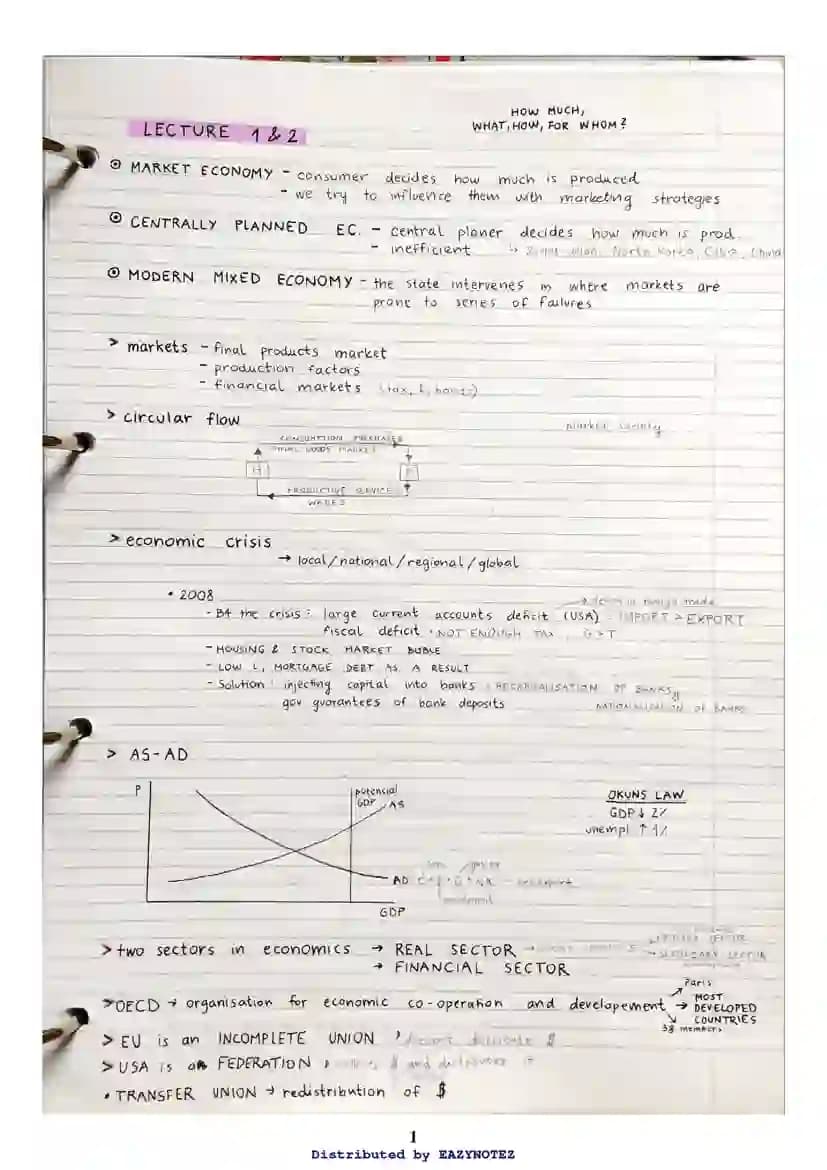 HOW MUCH,
WHAT, HOW, FOR WHOM?
LECTURE 1 & 2
MARKET ECONOMY - consumer decides how much is produced
- we try to influence them with marketing strategies
CENTRALLY PLANNED EC. - central planer decides how much is prod.
- inefficient → North Korea, Cuba, China
MODERN MIXED ECONOMY - the state intervenes in where markets are
prone to series of failures
> markets - final products market
- production factors
- financial markets
> circular flow
market society
CONSUMPTION PURCHASES
FINAL GOODS MARKET
H F
PRODUCTIVE SERVICE
WAGES
> economic crisis
→ local/national/regional/global
• 2008
- B4 the crisis: large current accounts deficit (USA) IMPORT > EXPORT
fiscal deficit • NOT ENOUGH TAX, G>T
- HOUSING & STOCK MARKET BUBLE
- LOW i, MORTGAGE DEBT AS A RESULT
- Solution: injecting capital into banks : RECAPITALISATION OF BANKS,
gov guarantees of bank deposits NATIONALIZATION OF BANKS
> AS-AD
P
potencial
GDP
AS
OKUNS LAW
GDP ↓ 2%
unempl ↑ 1%
AD
GDP
> two sectors in economics → REAL SECTOR
SECONDARY SECTOR
→ FINANCIAL SECTOR
Paris
> OECD → organisation for economic co-operation and developement → MOST
DEVELOPED
COUNTRIES
38 members
> EU is an INCOMPLETE UNION
> USA is a FEDERATION
• TRANSFER UNION → redistribution of $
1
Distributed by EAZYNOTEZ